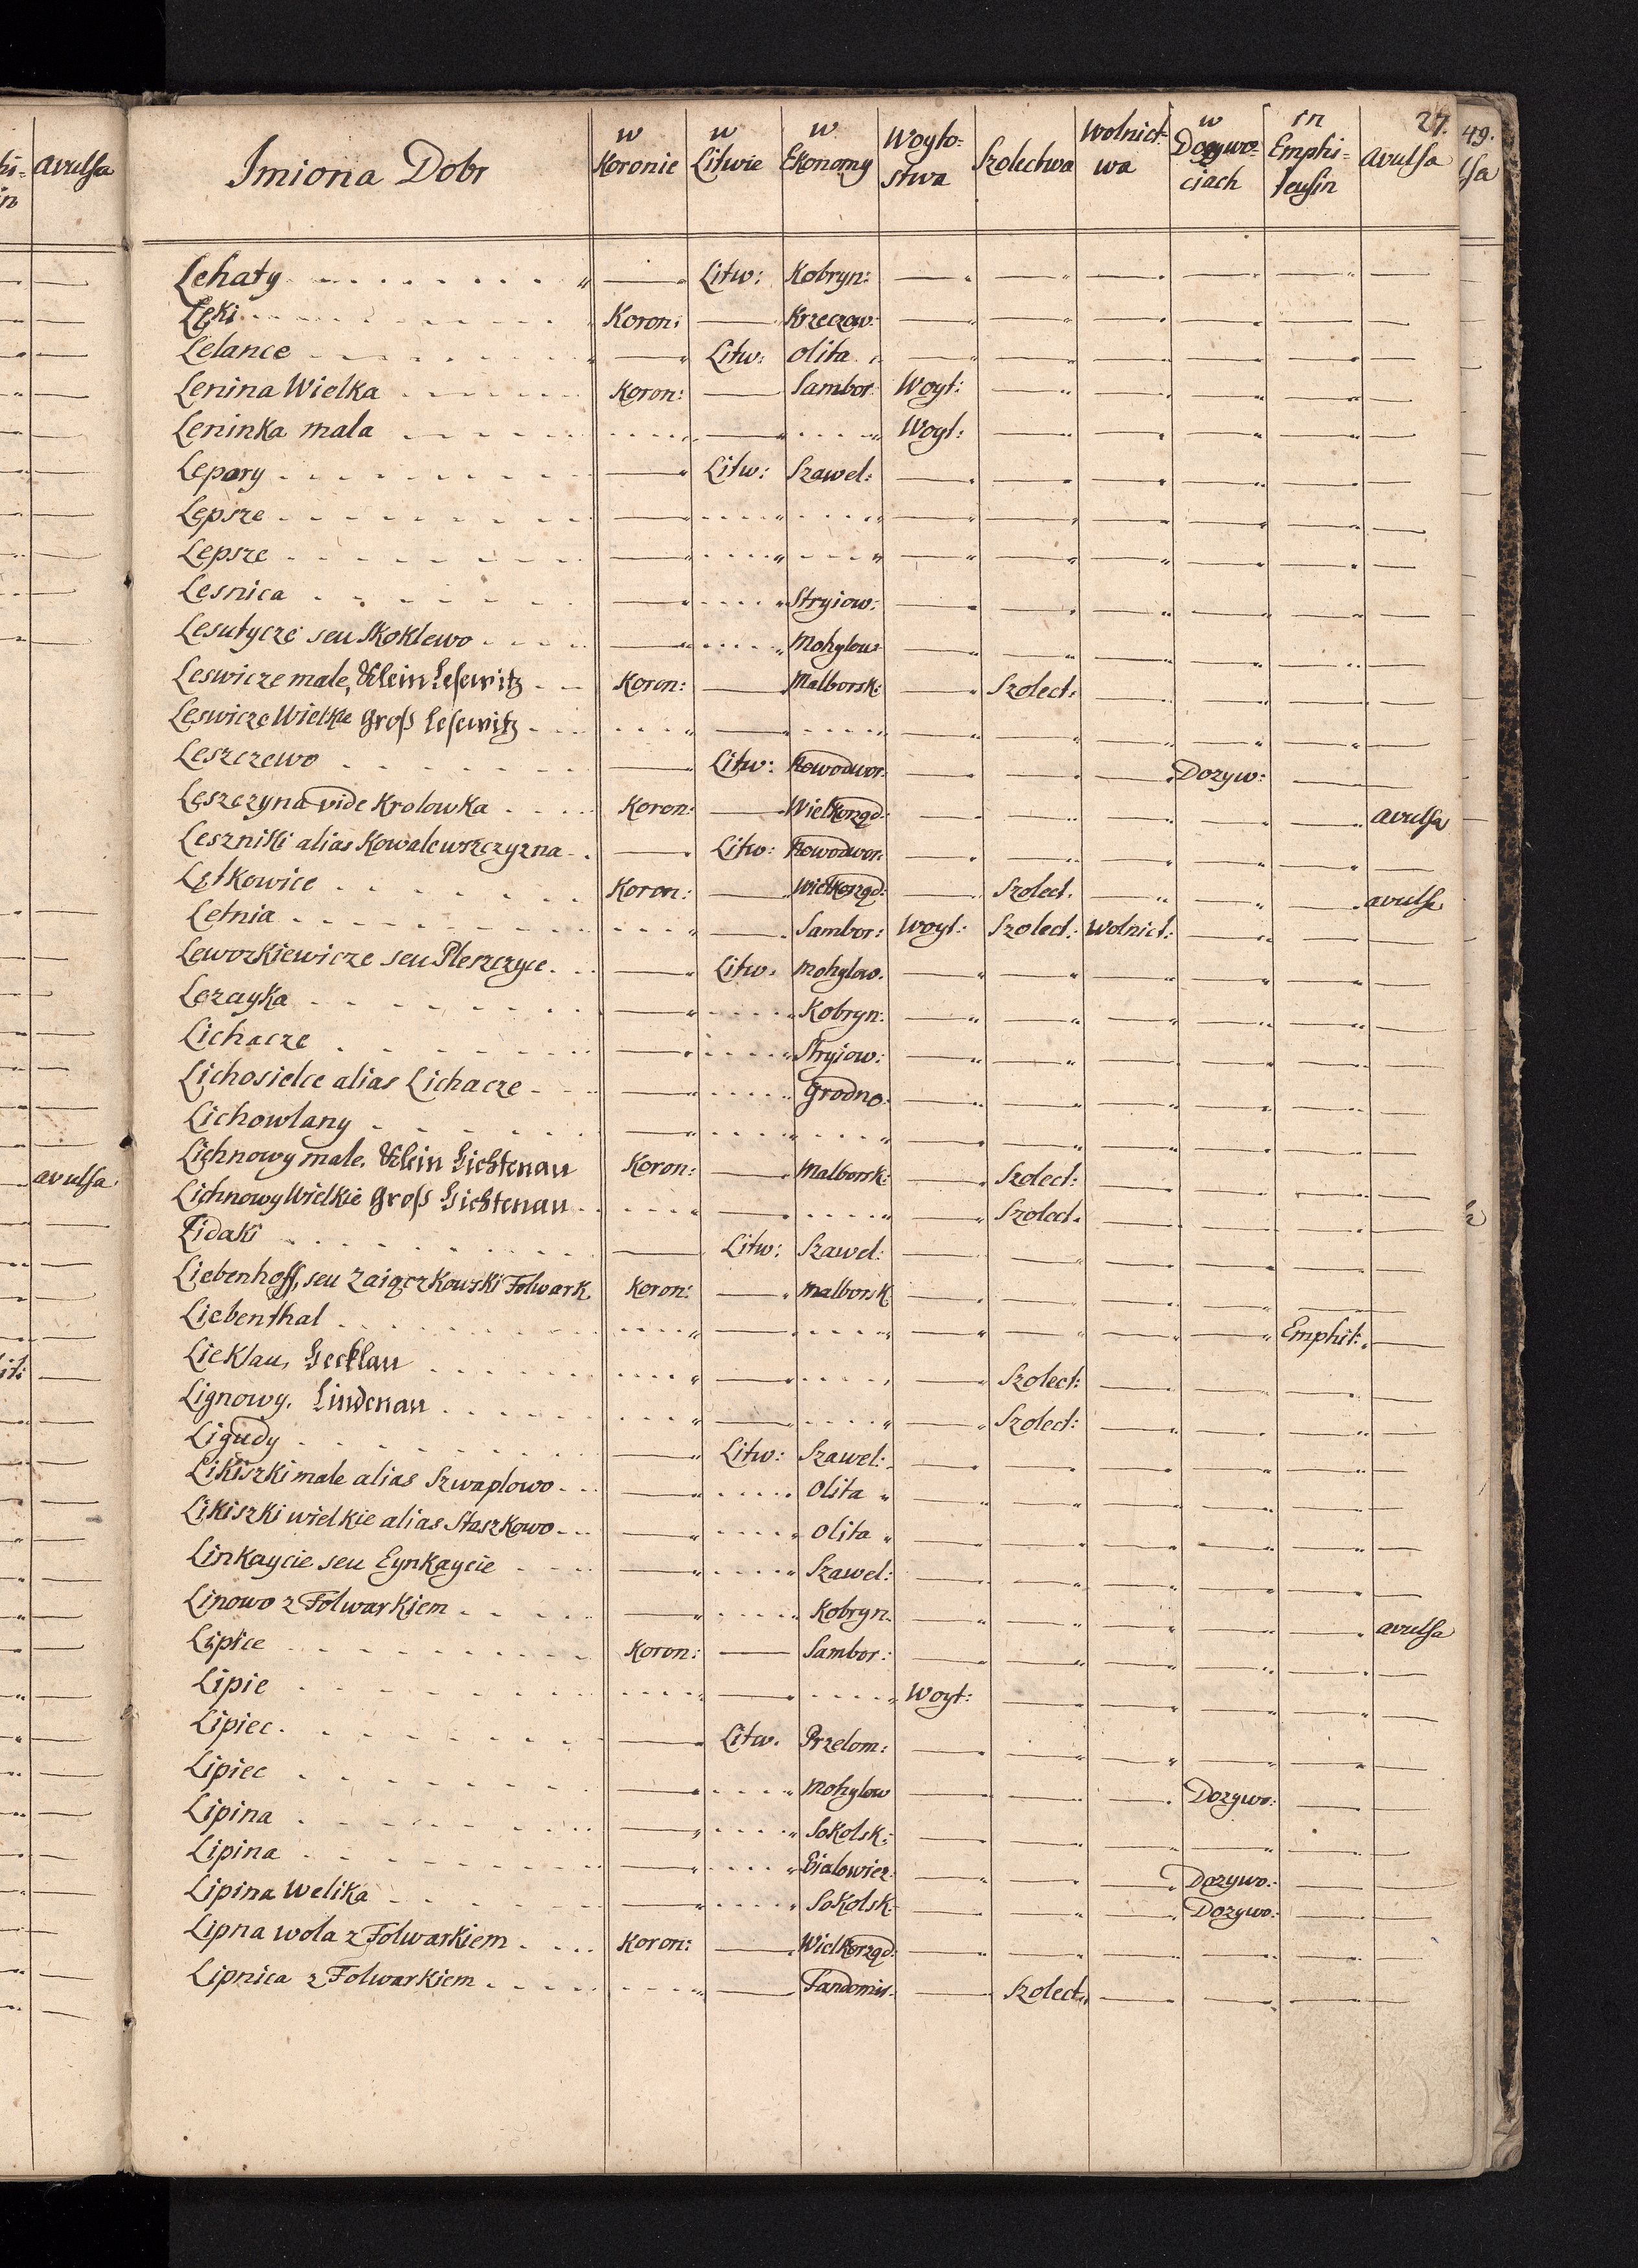 avulsa
avulsa
27.
49.
Imiona Dobr | w Koronie | w Litwie | w Ekonomy | Woyto-stwa | Szolectwa | Wolnict-wa | w Dozywo-ciach | in Emphi-teusin | avulsa
Lehaty | Litw: | Kobryn:
Łęki | Koron: | Krzeczow:
Lelance | Litw: | Olita
Lenina Wielka | Koron: | Sambor | Woyt:
Leninka mała | Woyt:
Lepary | Litw: | Szawel:
Lepsze
Lepsze
Lesnica | Stryiow:
Lesutycze seu Skoklewo | Mohylow:
Leswicze małe, Klein Lesewitz | Koron: | Malborsk: | Szolect:
Leswicze Wielkie Groß Lesewitz
Leszczewo | Litw: | Nowodwor: | Dozyw:
Leszczyna vide Krolowka | Koron: | Wielkorząd: | avulsa
Leszniki alias Kowalewszczyzna | Litw: | Nowodwor:
Lętkowice | Koron: | Wielkorząd: | Szolect: | avulsa
Letnia | Sambor: | Woyt: | Szolect: | Wolnict:
Leworkiewicze seu Pleszczyce | Litw: | Mohylow:
Lezayka | Kobryn:
Lichacze | Stryiow:
Lichosielce alias Lichacze | Grodno.
Lichowlany
Lichnowy małe. Klein Lichtenau | Koron: | Malborsk: | Szolect:
Lichnowy Wielkie Groß Lichtenau | Szolect:
Lidaki | Litw: | Szawel:
Liebenhoff, seu Zaiączkowski Folwark. | Koron: | Malborsk
Liebenthal | Emphit:
Lieklau, Lecklau | Szolect:
Lignowy. Lindenau | Szolect:
Ligudy | Litw: | Szawel:
Likiszki małe alias Szwaplowo | Olita
Likiszki wielkie alias Staszkowo | Olita
Linkaycie seu Eynkaycie | Szawel:
Linowo z Folwarkiem | Kobryn. | avulsa
Lipice | Koron: | Sambor:
Lipie | Woyt:
Lipiec | Litw. | Przelom:
Lipiec | Mohylow | Dozywo:
Lipina | Sokolsk:
Lipina | Bialowiez: | Dozywo:
Lipina Welika | Sokolsk: | Dozywo:
Lipna wola z Folwarkiem | Koron: | Wielkorząd:
Lipnica z Folwarkiem | Sandomir. | Szolect: